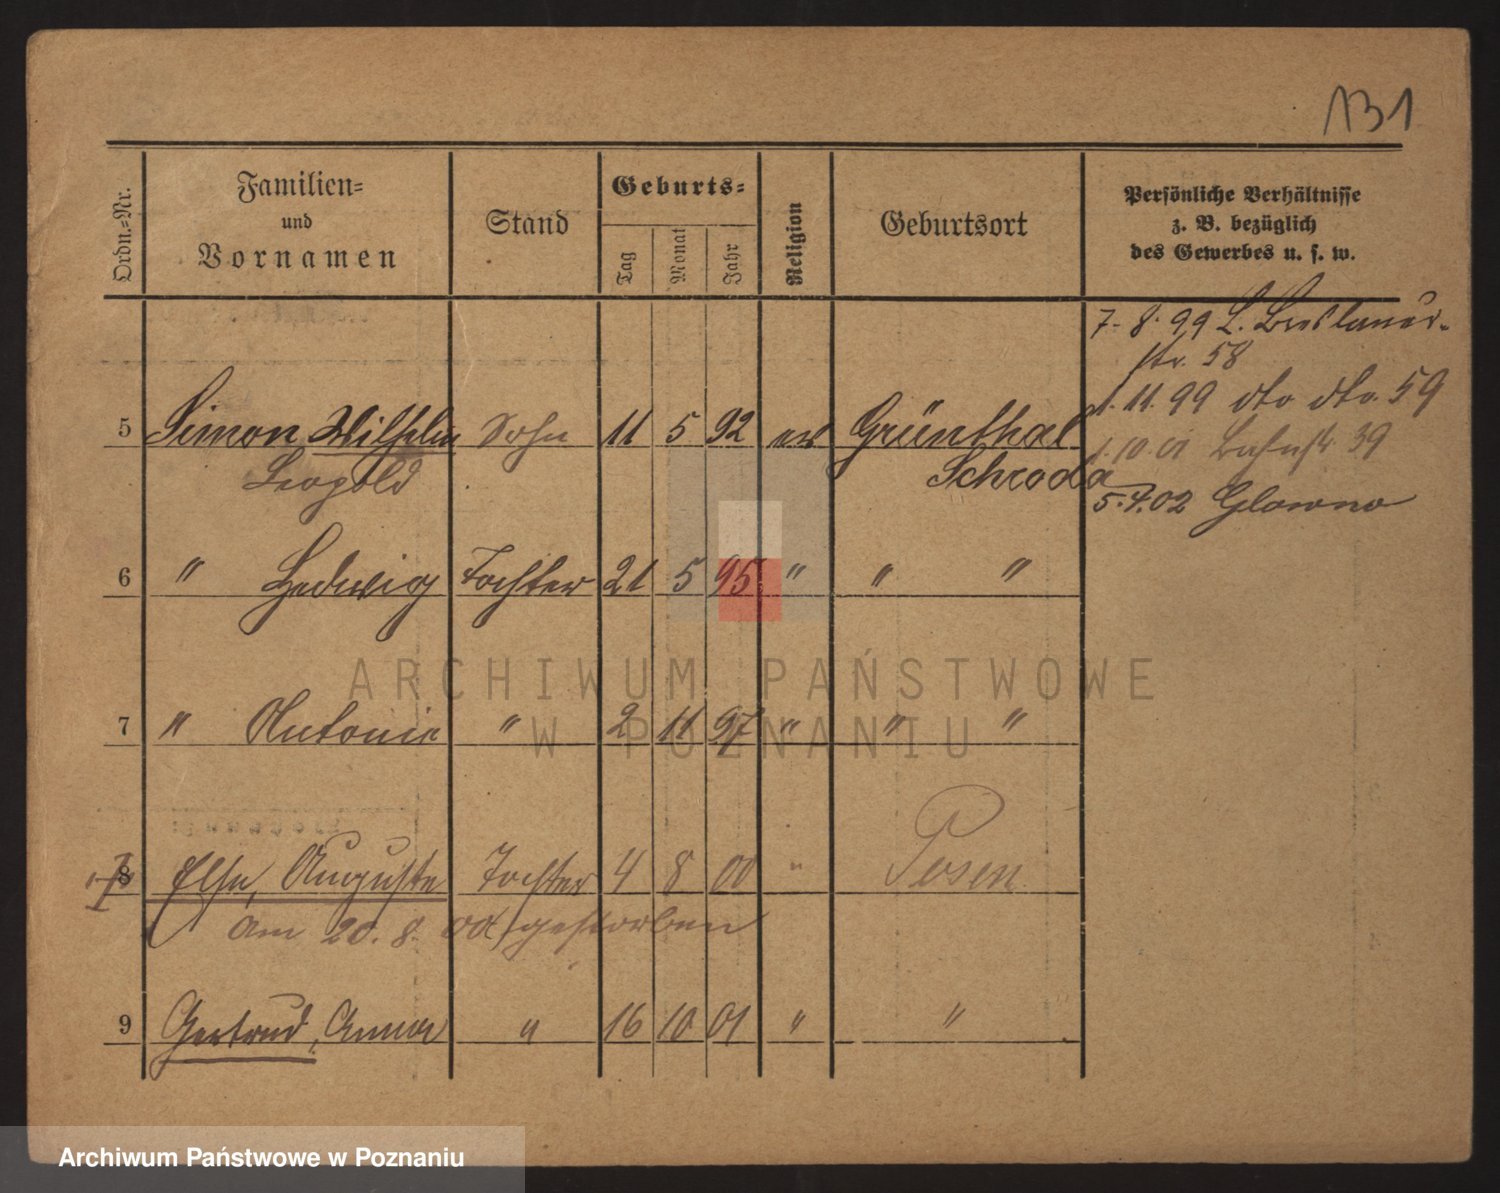 131
Ordn.-Nr.
Familien-
und
Vornamen
Stand
Geburts-
Tag
Monat
Jahr
Religion
Geburtsort
Persönliche Verhältnisse
z. B. bezüglich
des Gewerbes u. s. w.
7. 8. 99 Breslauer-
str. 58
1. 11. 99 dto dto. 59
5 Simon Wilhelm Sohn 11 5 92 ev Grünthal
Leopold Schroda
1. 10. 01 39
5. 4. 02 Glowno
6 " Hedwig Tochter 21 5 95 " " "
7 " Antonie " 2 11 97 " " "
8 Else, Auguste Tochter 4 8 00 " Posen
am 20. 8. 00 gestorben
9 Gertrud, Anna " 16 10 01 " "
ARCHIWUM PAŃSTWOWE
W POZNANIU
Archiwum Państwowe w Poznaniu